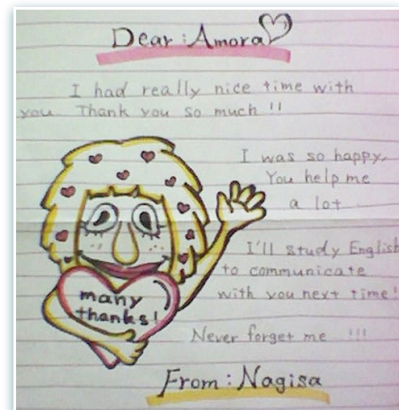 Dear : Amora
I had really nice time with
you. Thank you so much !!
I was so happy.
You help me
a lot
I'll study English
to communicate
with you next time!
Never forget me !!!
many
thanks!
From : Nagisa